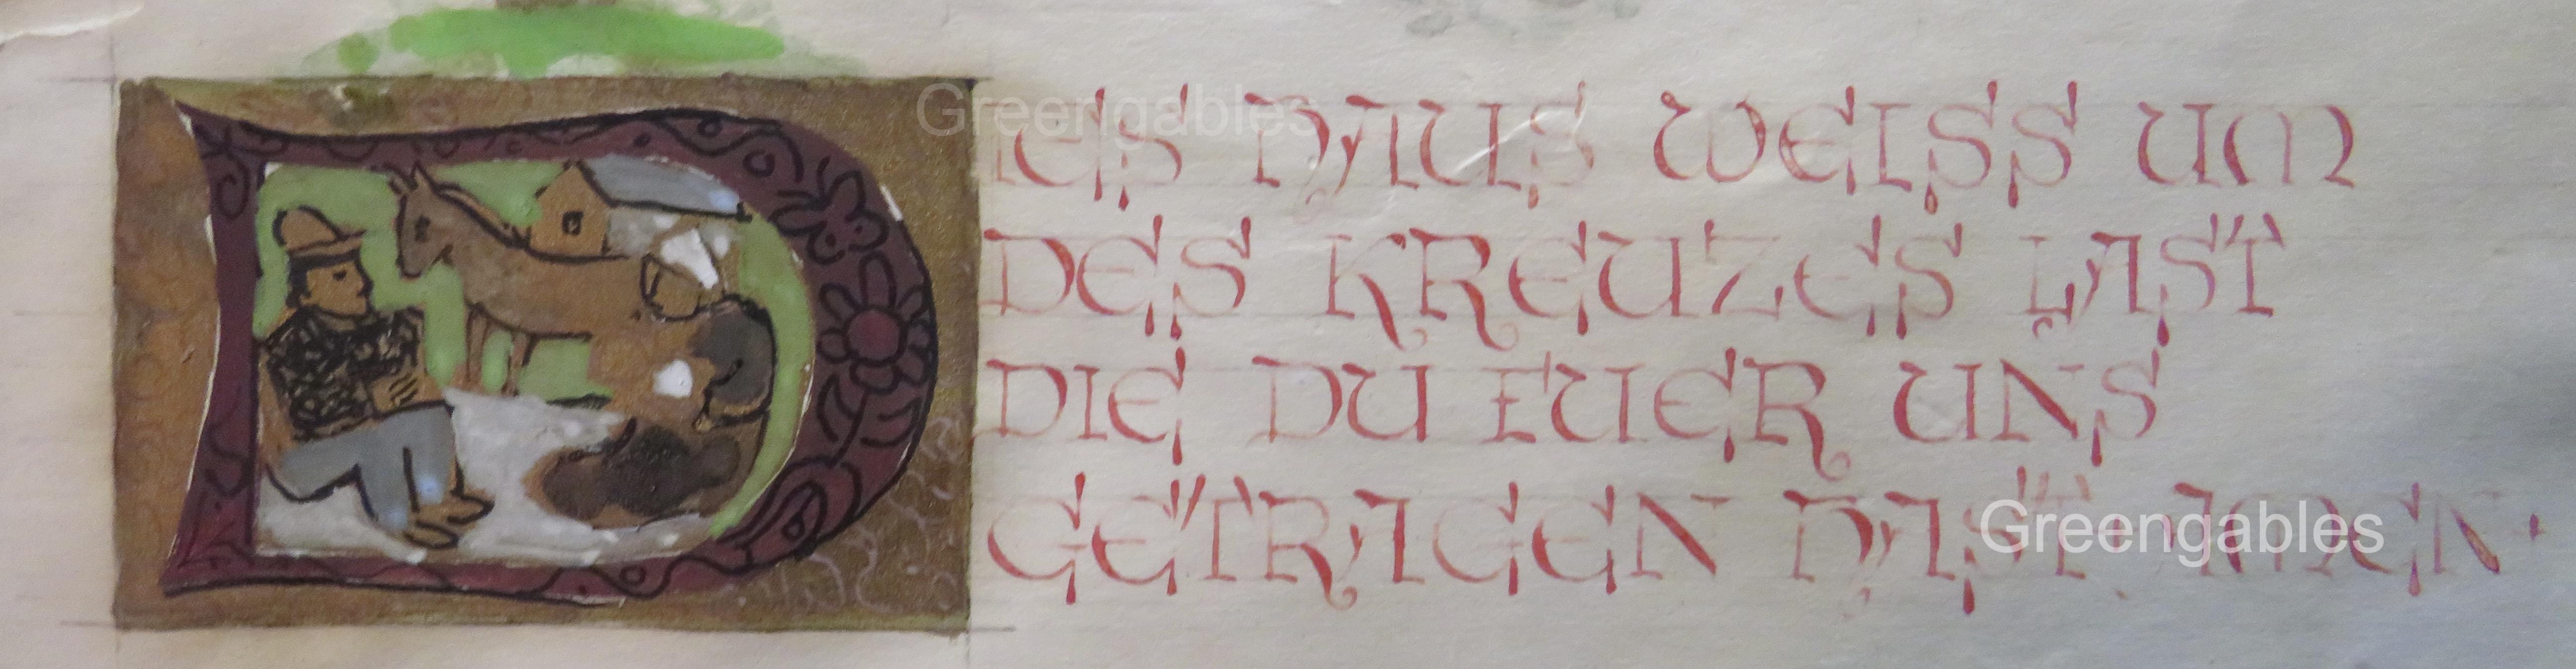 DIES HAUS WEISS UM
DES KREUZES LAST
DIE DU FUER UNS
GETRAGEN HAST AMEN·
Greengables
Greengables